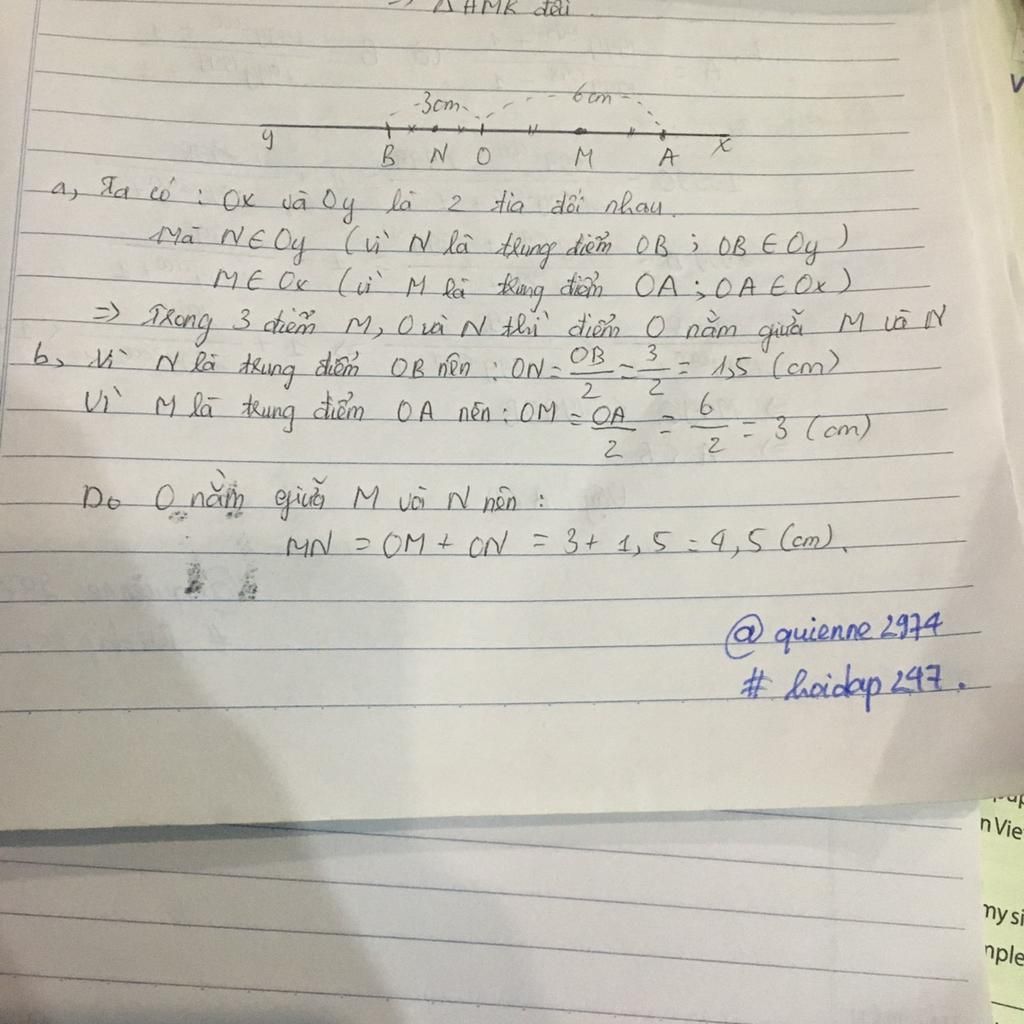 => ΔAMK đều.
3cm 6cm
y B N O M A x
a, Ta có : Ox và Oy là 2 tia đối nhau.
Mà N∈Oy (vì N là trung điểm OB ; OB ∈ Oy)
M∈ Ox (vì M là trung điểm OA ; OA∈Ox)
=> Trong 3 điểm M, O và N thì điểm O nằm giữa M và N
b, Vì N là trung điểm OB nên : ON = OB/2 = 3/2 = 1,5 (cm)
Vì M là trung điểm OA nên : OM = OA/2 = 6/2 = 3 (cm)
Do O nằm giữa M và N nên :
MN = OM + ON = 3 + 1,5 = 4,5 (cm).
@ quienne 2974
# hoidap 247.
n Vie
my si
mple